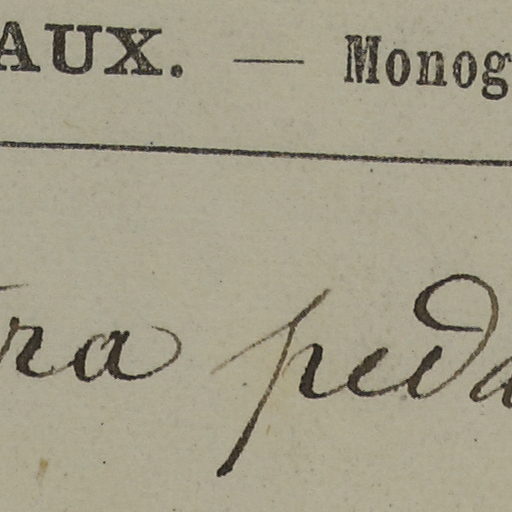 AUX. — Monog
ra peda